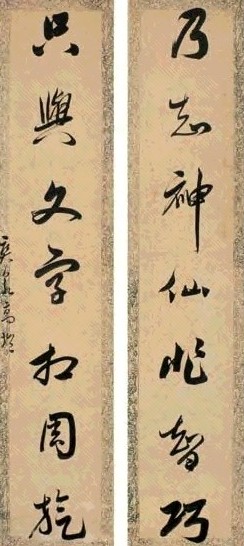 乃知神仙非智巧
只與文字相周旋